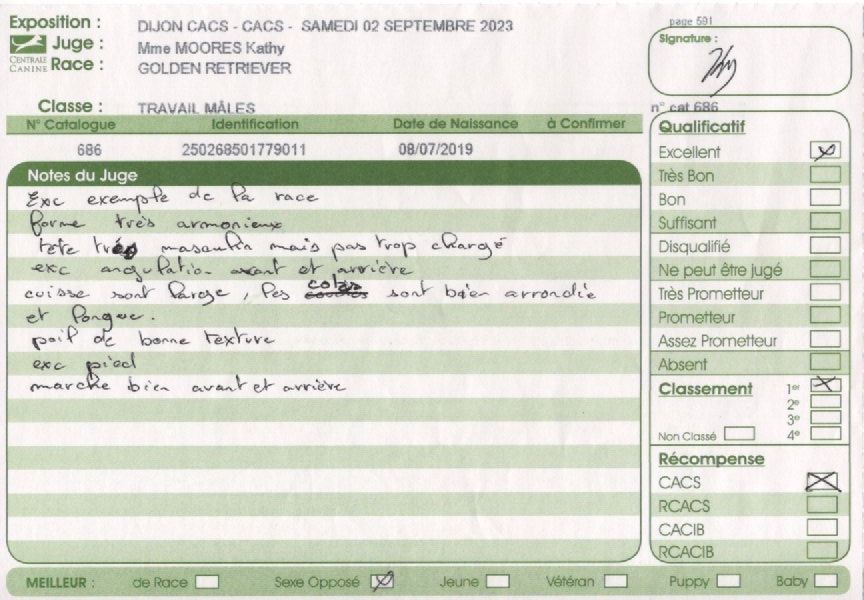 Exposition : DIJON CACS - CACS - SAMEDI 02 SEPTEMBRE 2023
Juge : Mme MOORES Kathy
CENTRALE CANINE
Race : GOLDEN RETRIEVER
Classe : TRAVAIL MÂLES
page 591
Signature :
n° cat 686
N° Catalogue Identification Date de Naissance à Confirmer
686 250268501779011 08/07/2019
Notes du Juge
Exc exemple de la race
forme très armonieux
tete très masculin mais pas trop chargé
exc angulation avant et arrière
cuisse sont large, les cotes sont bien arrondie
et longue.
poil de bonne texture
exc pied
marche bien avant et arrière
Qualificatif
Excellent
Très Bon
Bon
Suffisant
Disqualifié
Ne peut être jugé
Très Prometteur
Prometteur
Assez Prometteur
Absent
Classement 1er
2e
3e
Non Classé 4e
Récompense
CACS
RCACS
CACIB
RCACIB
MEILLEUR : de Race Sexe Opposé Jeune Vétéran Puppy Baby